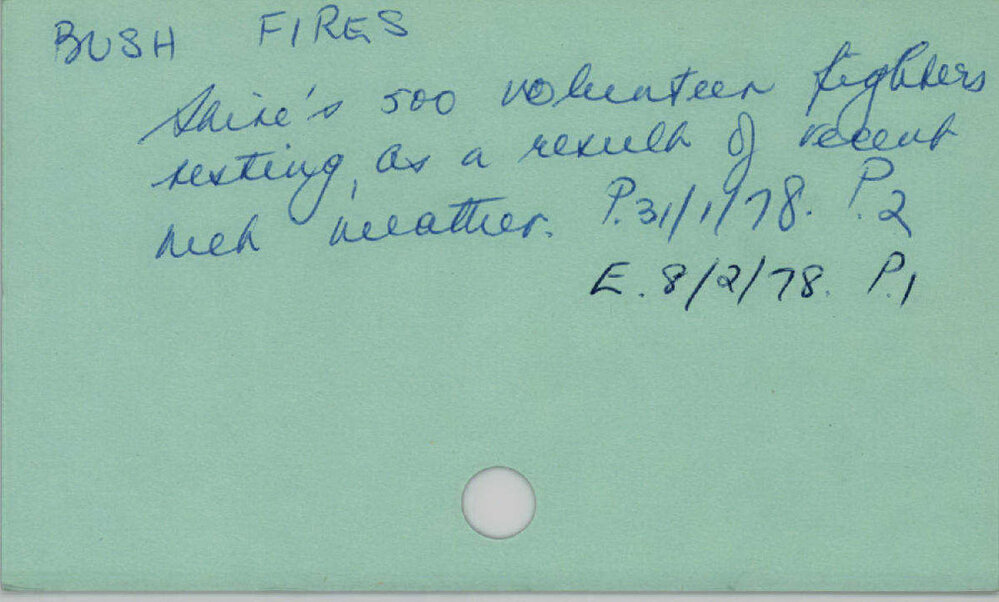 BUSH FIRES
Shire's 500 volunteer fighters
resting, as a result of recent
wet weather. P.31/1/78. P.2
E. 8/2/78. P.1